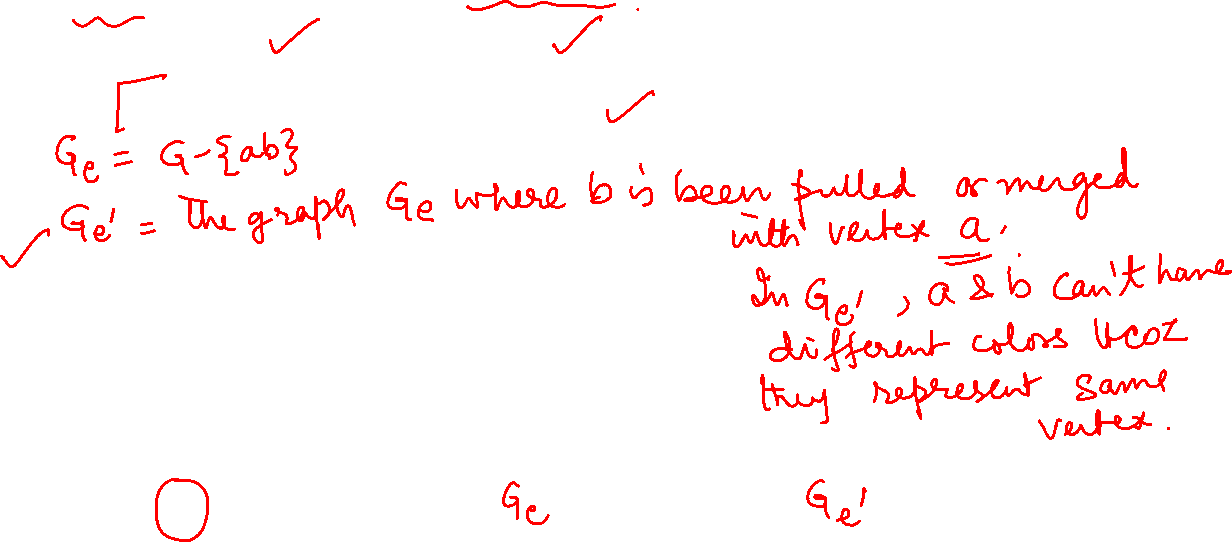 Ge = G-{ab}
Ge' = The graph Ge where b is been pulled or merged
with vertex a.
In Ge', a & b can't have
different colors bcoz
they represent same
vertex.
Ge Ge'